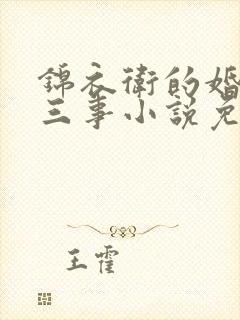 锦衣衛的婚
三事小説免
王霍